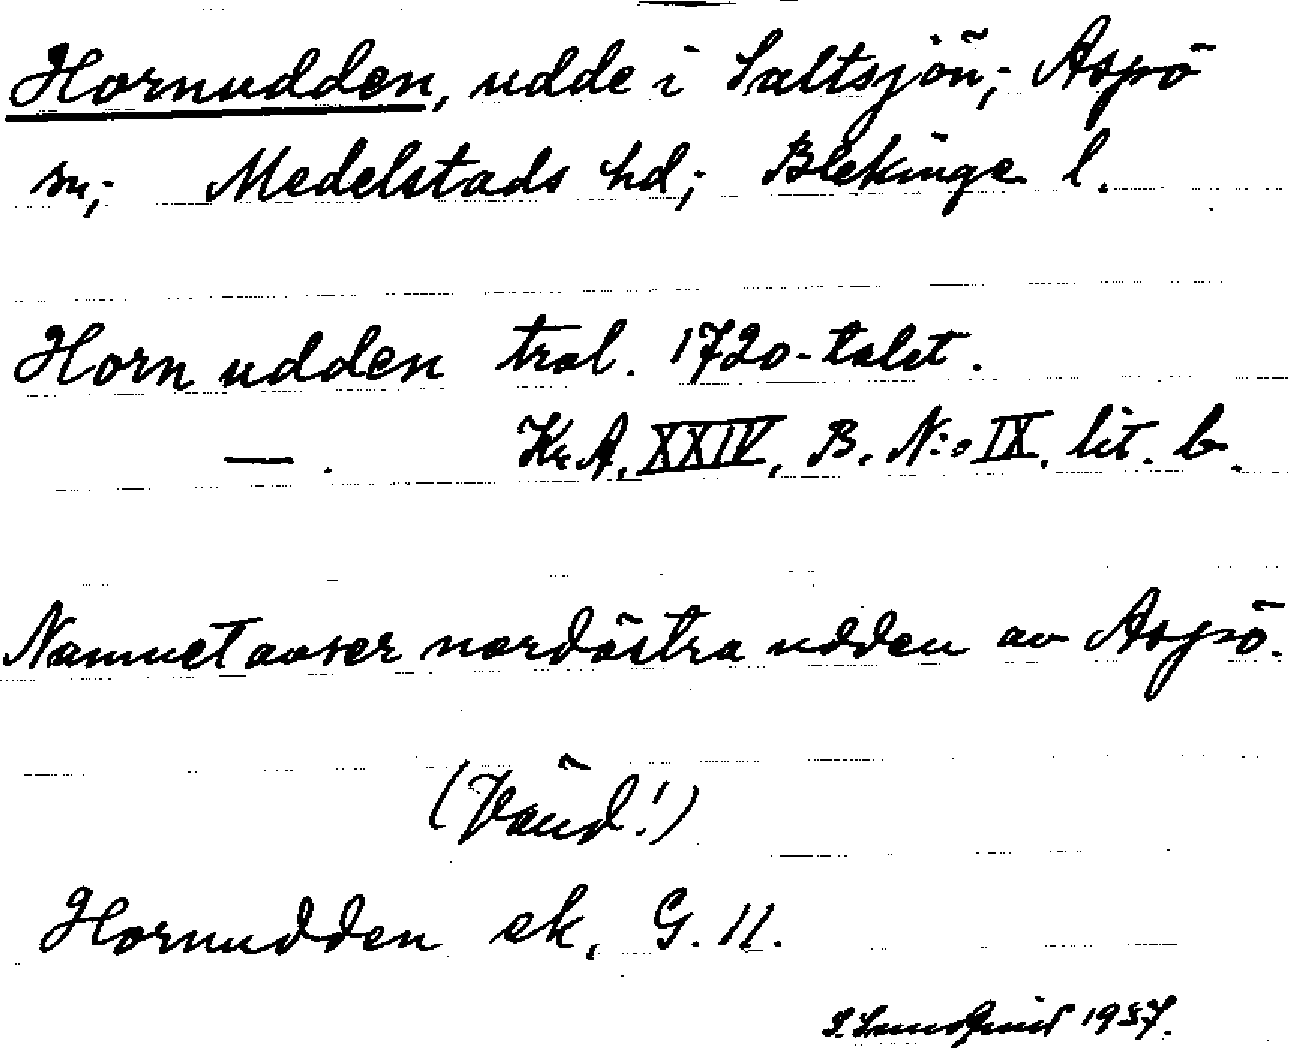 Hornudden, udde i Saltsjön; Aspö
sn; Medelstads hd; Blekinge l.
Horn udden trol. 1720-talet.
— . Kr.A. XXIV, B. N:o IX. lit. b.
Namnet avser nordöstra udden av Aspö.
(Vänd!)
Hornudden ek. G. 11.
Lundquist 1937.